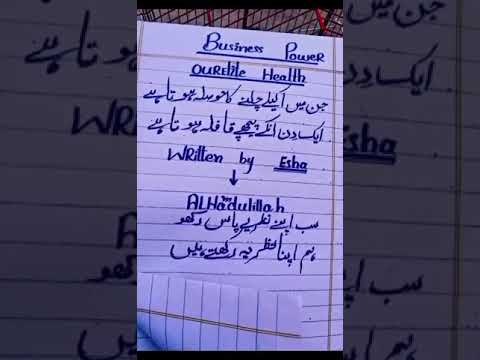 Business Power
OUREIile Health
جن میں اکیلے چلنے کا حوصلہ ہوتا ہے
ایک دن انکے پیچھے قافلہ ہوتا ہے
WRitten by Esha
ALHadulillah
سب اپنے نظریے پاس رکھو
ہم اپنا نظریہ رکھتے ہیں